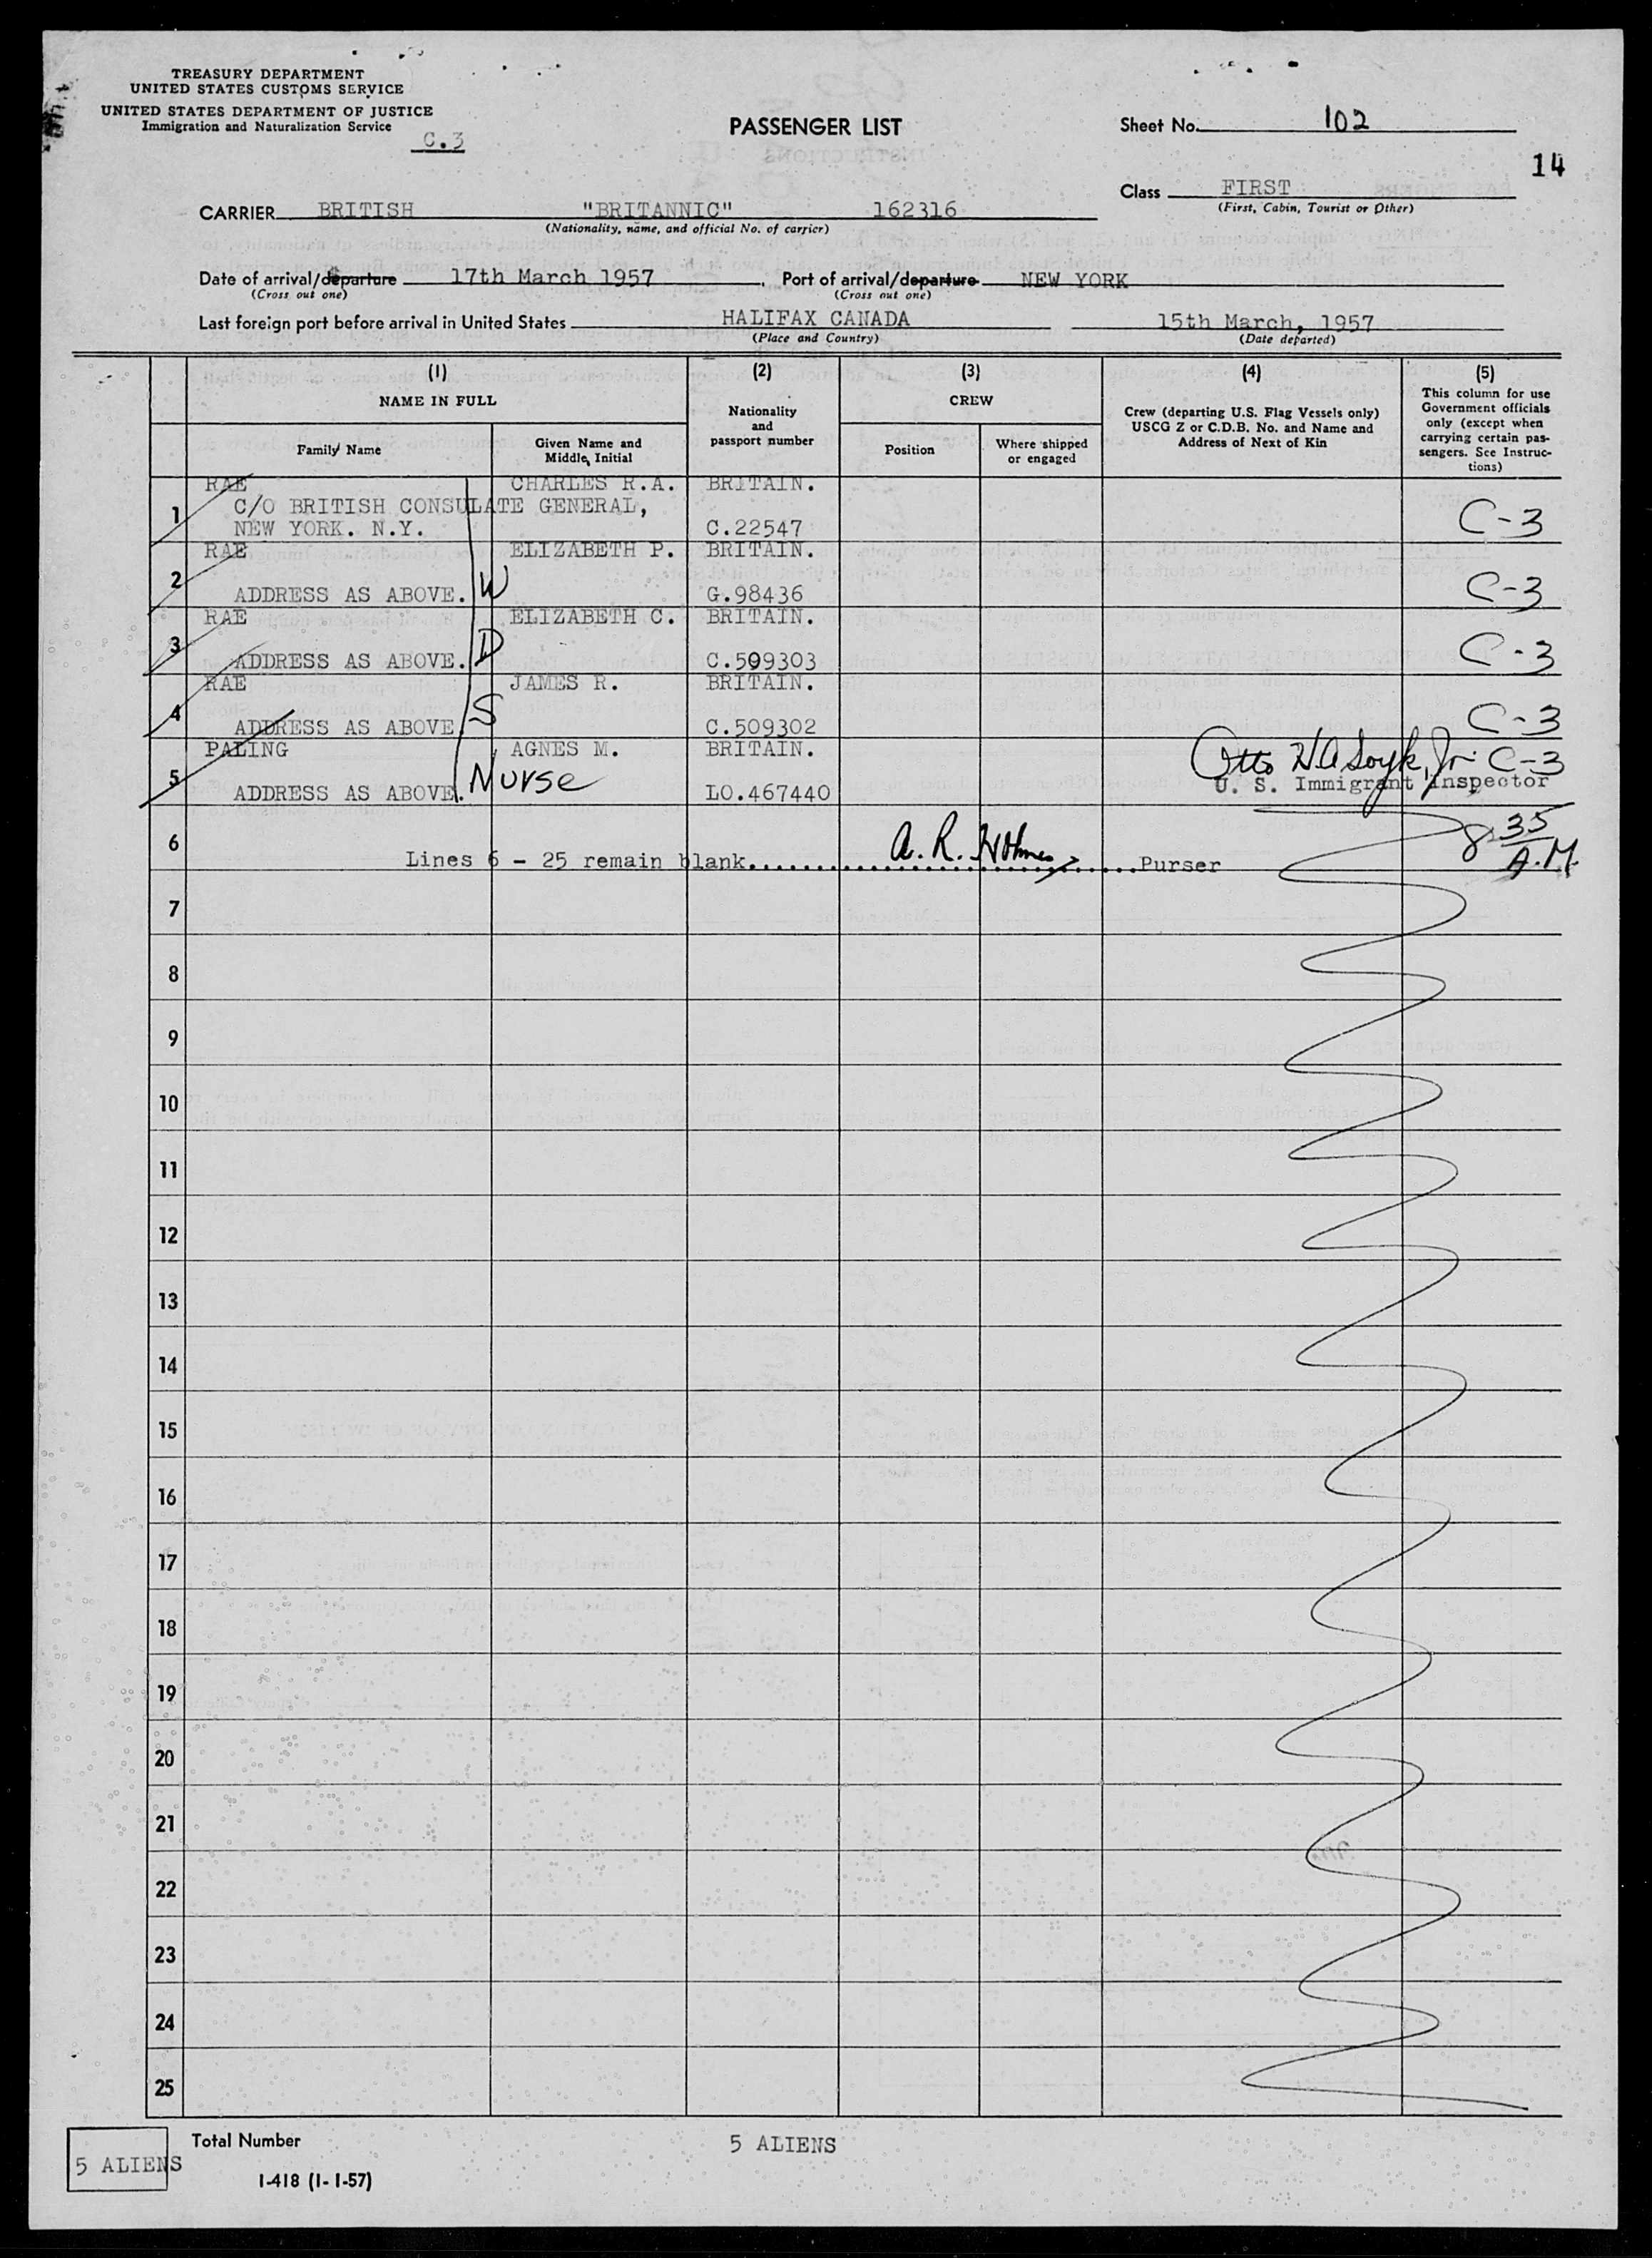 TREASURY DEPARTMENT
UNITED STATES CUSTOMS SERVICE
UNITED STATES DEPARTMENT OF JUSTICE
Immigration and Naturalization Service
C.3
PASSENGER LIST
Sheet No. 102
14
Class FIRST
(First, Cabin, Tourist or Other)
CARRIER BRITISH "BRITANNIC" 162316
(Nationality, name, and official No. of carrier)
Date of arrival/departure 17th March 1957. Port of arrival/departure NEW YORK
(Cross out one) (Cross out one)
Last foreign port before arrival in United States HALIFAX CANADA 15th March, 1957
(Place and Country) (Date departed)
(1) (2) (3) (4) (5)
NAME IN FULL
Family Name
Given Name and
Middle Initial
Nationality
and
passport number
CREW
Position
Where shipped
or engaged
Crew (departing U.S. Flag Vessels only)
USCG Z or C.D.B. No. and Name and
Address of Next of Kin
This column for use
Government officials
only (except when
carrying certain pas-
sengers. See Instruc-
tions)
RAE CHARLES R.A. BRITAIN.
1 C/O BRITISH CONSULATE GENERAL, C-3
NEW YORK. N.Y. C.22547
RAE ELIZABETH P. BRITAIN.
2 ADDRESS AS ABOVE. W G.98436 C-3
RAE ELIZABETH C. BRITAIN.
3 ADDRESS AS ABOVE. D C.509303 C-3
RAE JAMES R. BRITAIN.
4 ADDRESS AS ABOVE S C.509302 C-3
PALING AGNES M. BRITAIN. C-3
5 ADDRESS AS ABOVE. Nurse LO.467440
Otto Jr.
U. S. Immigrant Inspector
8:35
A.M.
6 Lines 6 - 25 remain blank A. R. Holmes Purser
7
8
9
10
11
12
13
14
15
16
17
18
19
20
21
22
23
24
25
5 ALIENS
Total Number 5 ALIENS
I-418 (1-1-57)